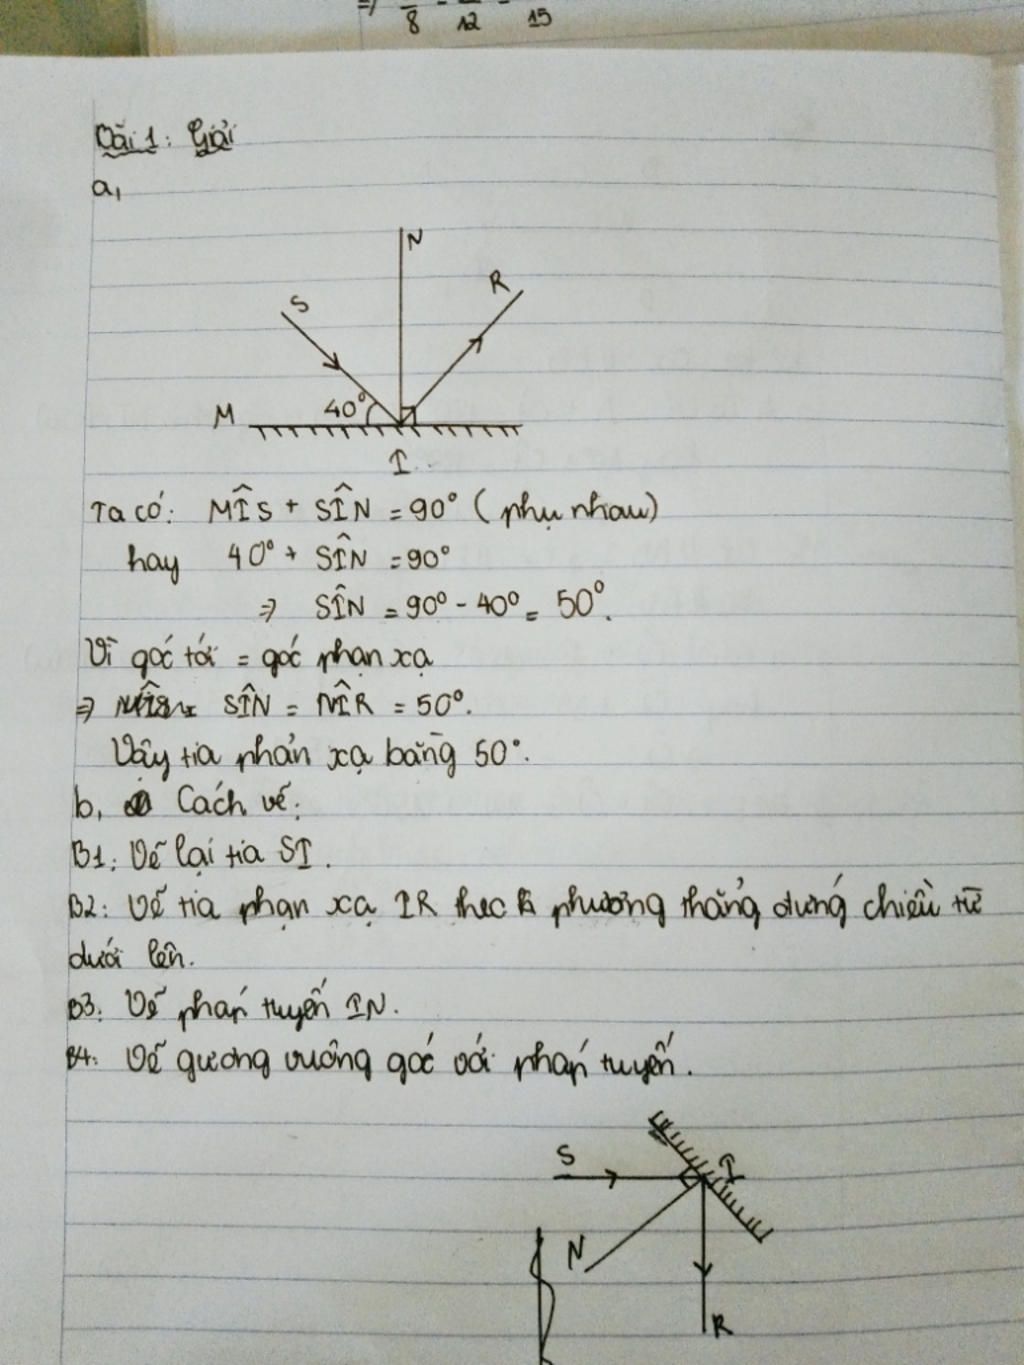 => 8 12 15
Bài 1: Giải
a,
N
R
S
40°
M
I
Ta có: MÎS + SÎN = 90° (phụ nhau)
hay 40° + SÎN = 90°
=> SÎN = 90° - 40° = 50°.
Vì góc tới = góc phản xạ
=> SÎN = NÎR = 50°.
Vậy tia phản xạ bằng 50°.
b, Cách vẽ:
B1: Vẽ lại tia SI.
B2: Vẽ tia phản xạ IR theo phương thẳng đứng chiều từ
dưới lên.
B3: Vẽ pháp tuyến IN.
B4: Vẽ gương vuông góc với pháp tuyến.
S
I
N
R